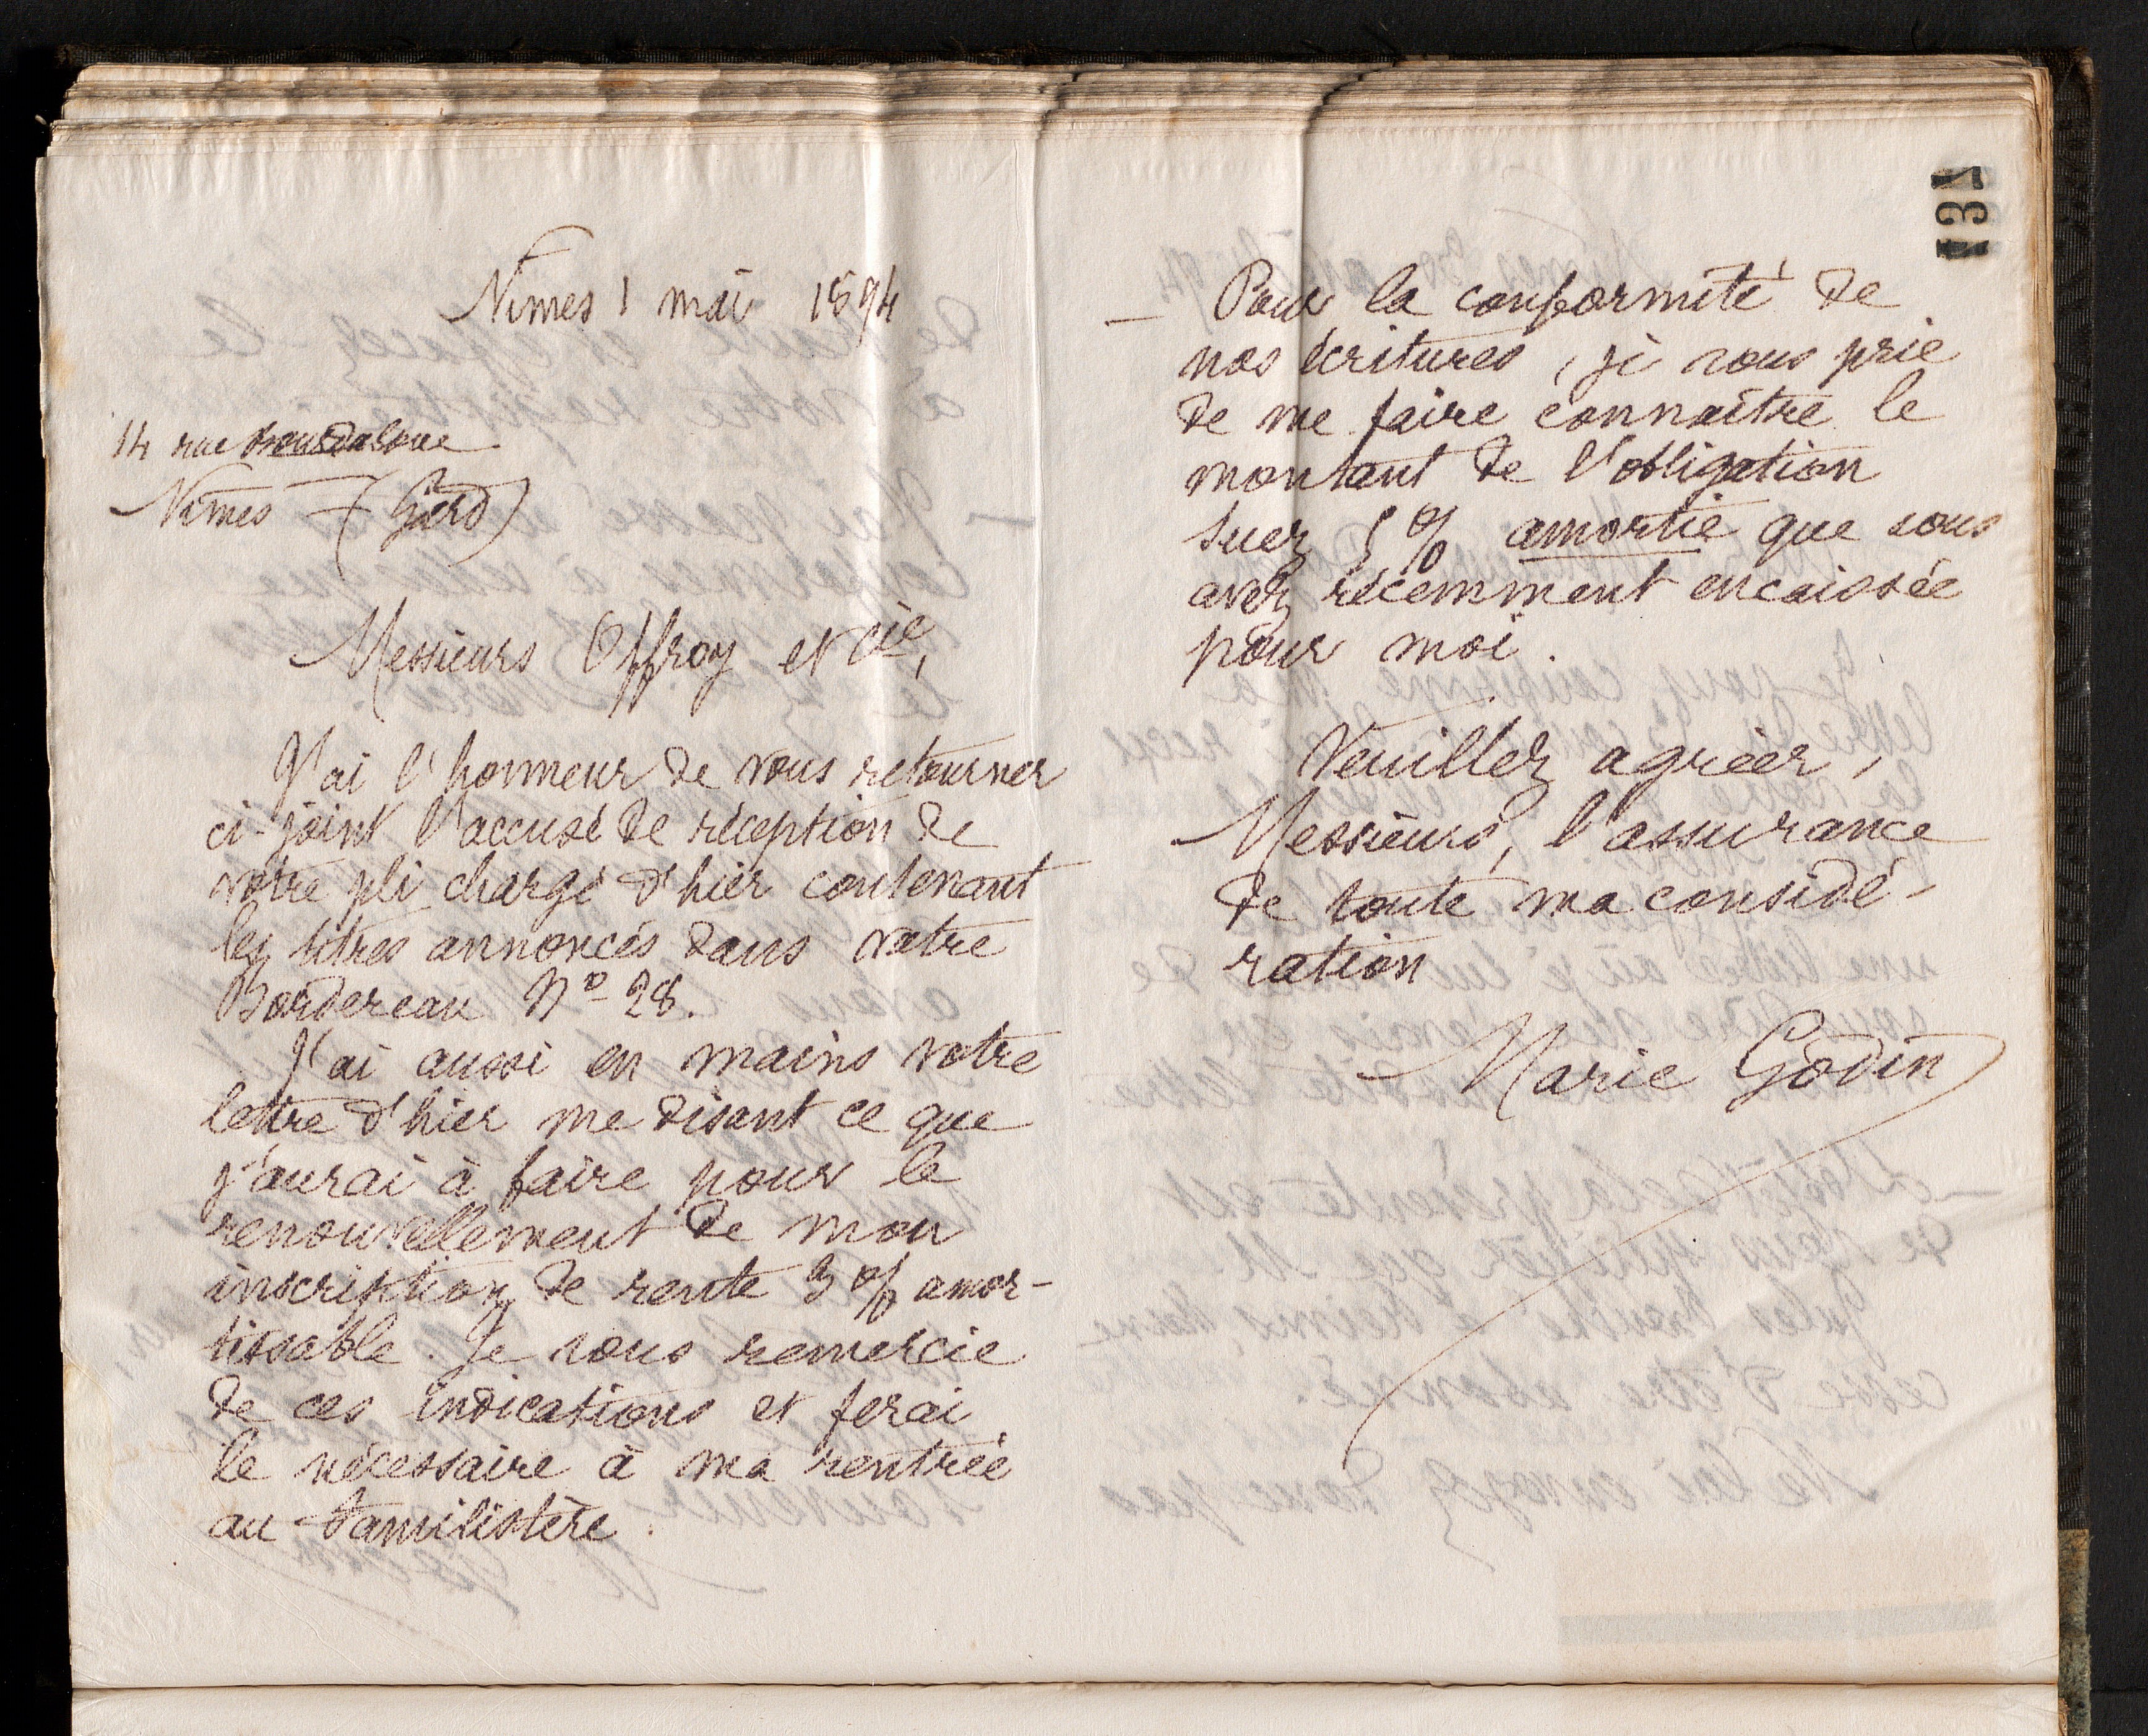 Nimes 1 mai 1894
14 rue Bourdaloue
Nimes (Gard)
Messieurs Offroy et Cie,
J'ai l'honneur de vous retourner
ci-joint l'accusé de réception de
votre pli chargé d'hier contenant
les titres annoncés dans votre
Bordereau No 28.
J'ai aussi en mains votre
lettre d'hier me disant ce que
j'aurai à faire pour le
renouvellement de mon
inscription de rente 3 % amor-
tissable. Je vous remercie
de ces indications et ferai
le nécessaire à ma rentrée
au Familistère.
134
— Pour la conformité de
nos écritures, je vous prie
de me faire connaître le
montant de l'obligation
Suez 5 % amortie que vous
avez récemment encaissée
pour moi.
Veuillez agréer,
Messieurs, l'assurance
de toute ma considé-
ration
Marie Godin